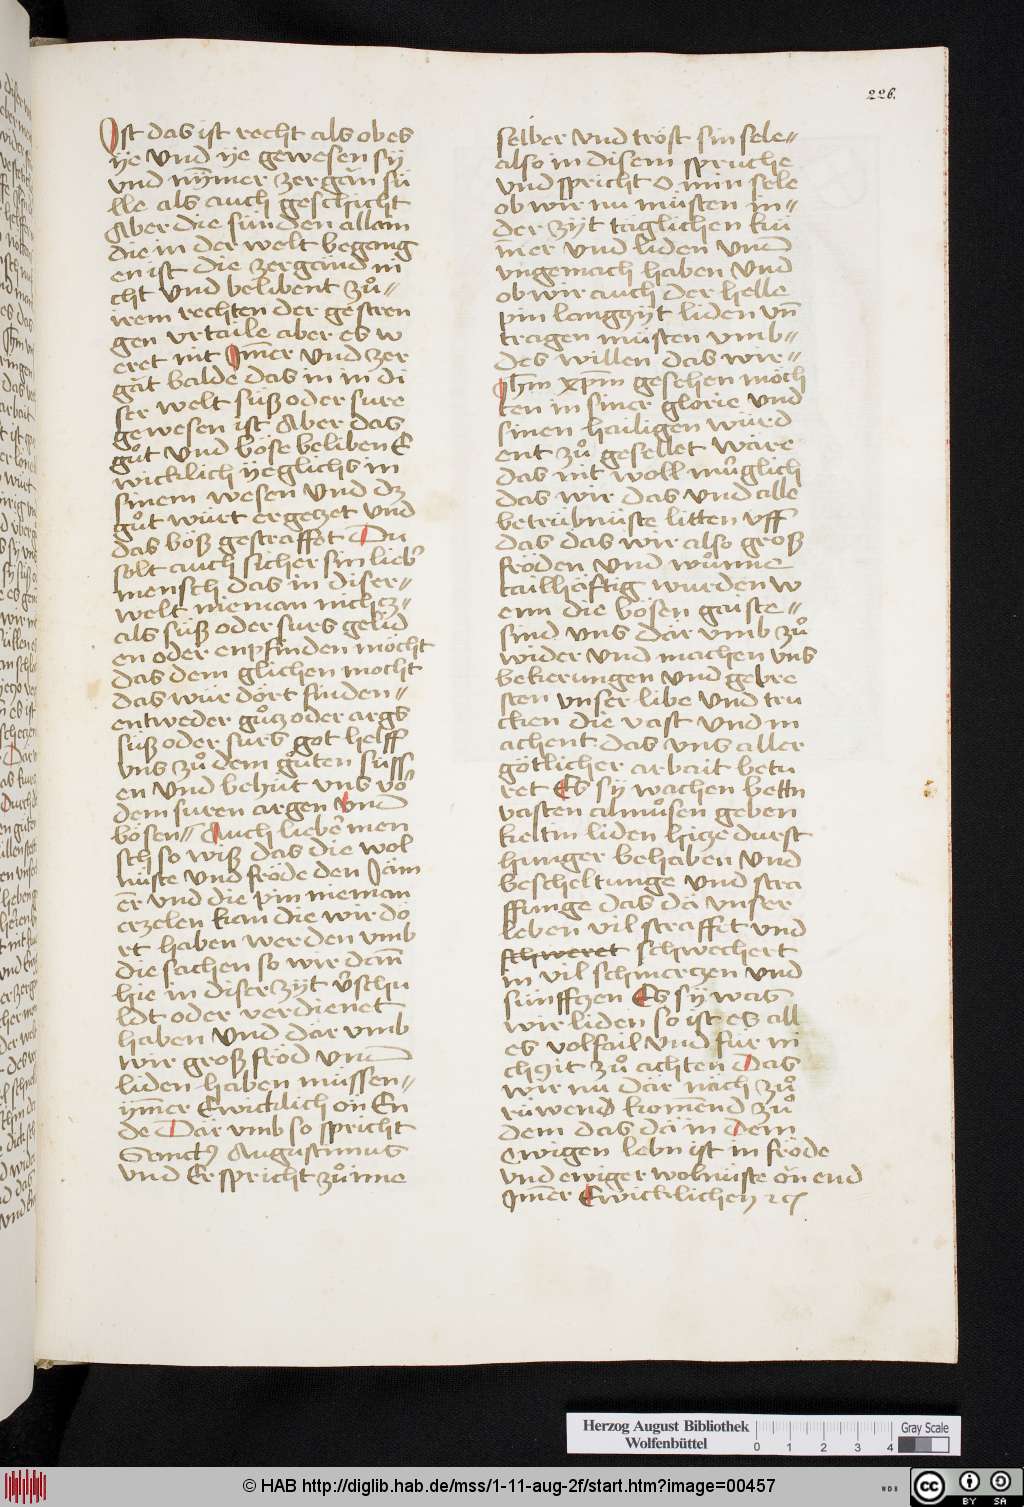 226.
Ist das ist recht als ob es
ye vnd ye gewesen sÿ
vnd nÿm̄er zergān sü
lle als auch geschicht
Aber die sünden allain
die in der welt begang
en ist die zergānd ni
cht vnd belibent zů //
irem rechten der gestren
gen vrtaile aber es w
eret nit Im̄er vnd zer
gāt balde das in in di
ser welt süß oder sure
gewesen ist Aber das
gůt vnd böse beliben E
wicklich ÿeglichs in
sinem wesen vnd dz
gůt würt ergetzet vnd
das böß gestraffet Du
solt auch sicher sin lieb͛
mensch das in diser //
welt nieman nichtz //
als süß oder surs gelid
en oder enpfinden möcht
das dem glichen mocht
das wür dört finden //
entweder gůtz oder args
süß oder surs got helff
vns zů dem gůten süss
en vnd behüt vns vō
dem suren argen vnd
bösen // Auch lieber͛ men
sch so wiß das die wol
lüste vnd fröde den Jām
er vnd die pin nieman
erzelen kan die wir do
rt haben werden vmb
die sachen so wir dañ
hie in diser zÿt v͛schu
ldt oder verdienet
haben vnd dār vmb
wir groß fröd vnd
liden haben müssen //
ÿm̄er Ewicklich ōn En
de Dār vmb so spricht
Sanctꝰ Augustinus
vnd Er spricht zů ime
selber vnd tröst sin sele //
also in disem spruche
vnd spricht O min sele
ob wir nu müsten in //
der zÿt täglichen kü
m̄er vnd liden vnd
vngemach haben vnd
ob wir auch der helle
pin langzÿt liden vn̄
tragen müsten vmb //
des willen das wir //
Jhm̄ xp̄m gesehen möch
ten in siner glorie vnd
sinen hailigen würd
ent zů gesellet wäre
das nit woll můglich
das wir das vnd alle
betrübnüste litten vff
das das wir also groß
fröden vnd wůnne
tailhäftig wurden w
enn die bösen gaiste //
sind vns dār vmb zů
wider vnd machen vns
bekerungen vnd gebre
sten vnser libe vnd tru
cken die vast vnd m
achent das vns aller
götlicher arbait betu
ret Es sÿ wachen betten
vasten almůsen geben
keltin liden hitze durst
hunger behaben vnd
bescheltunge vnd stra
ffunge das dā vnser
leben vil straffet vnd
schweret schwechert
in vil schmerczen vnd
sünffzen Es sÿ was
wir liden so ist es all
es volfail vnd für ni
chzit zů achten Das
wir nu dār nāch zů
rüwend kom̄end zů
dem das dā in dem
Ewigen lebn ist in fröde
vnd ewiger wolnüste ōn end
Im̄er Ewicklichen ⁊c̄
Herzog August Bibliothek
Wolfenbüttel
0 1 2 3 4
Gray Scale
© HAB http://diglib.hab.de/mss/1-11-aug-2f/start.htm?image=00457
WDB
cc BY SA